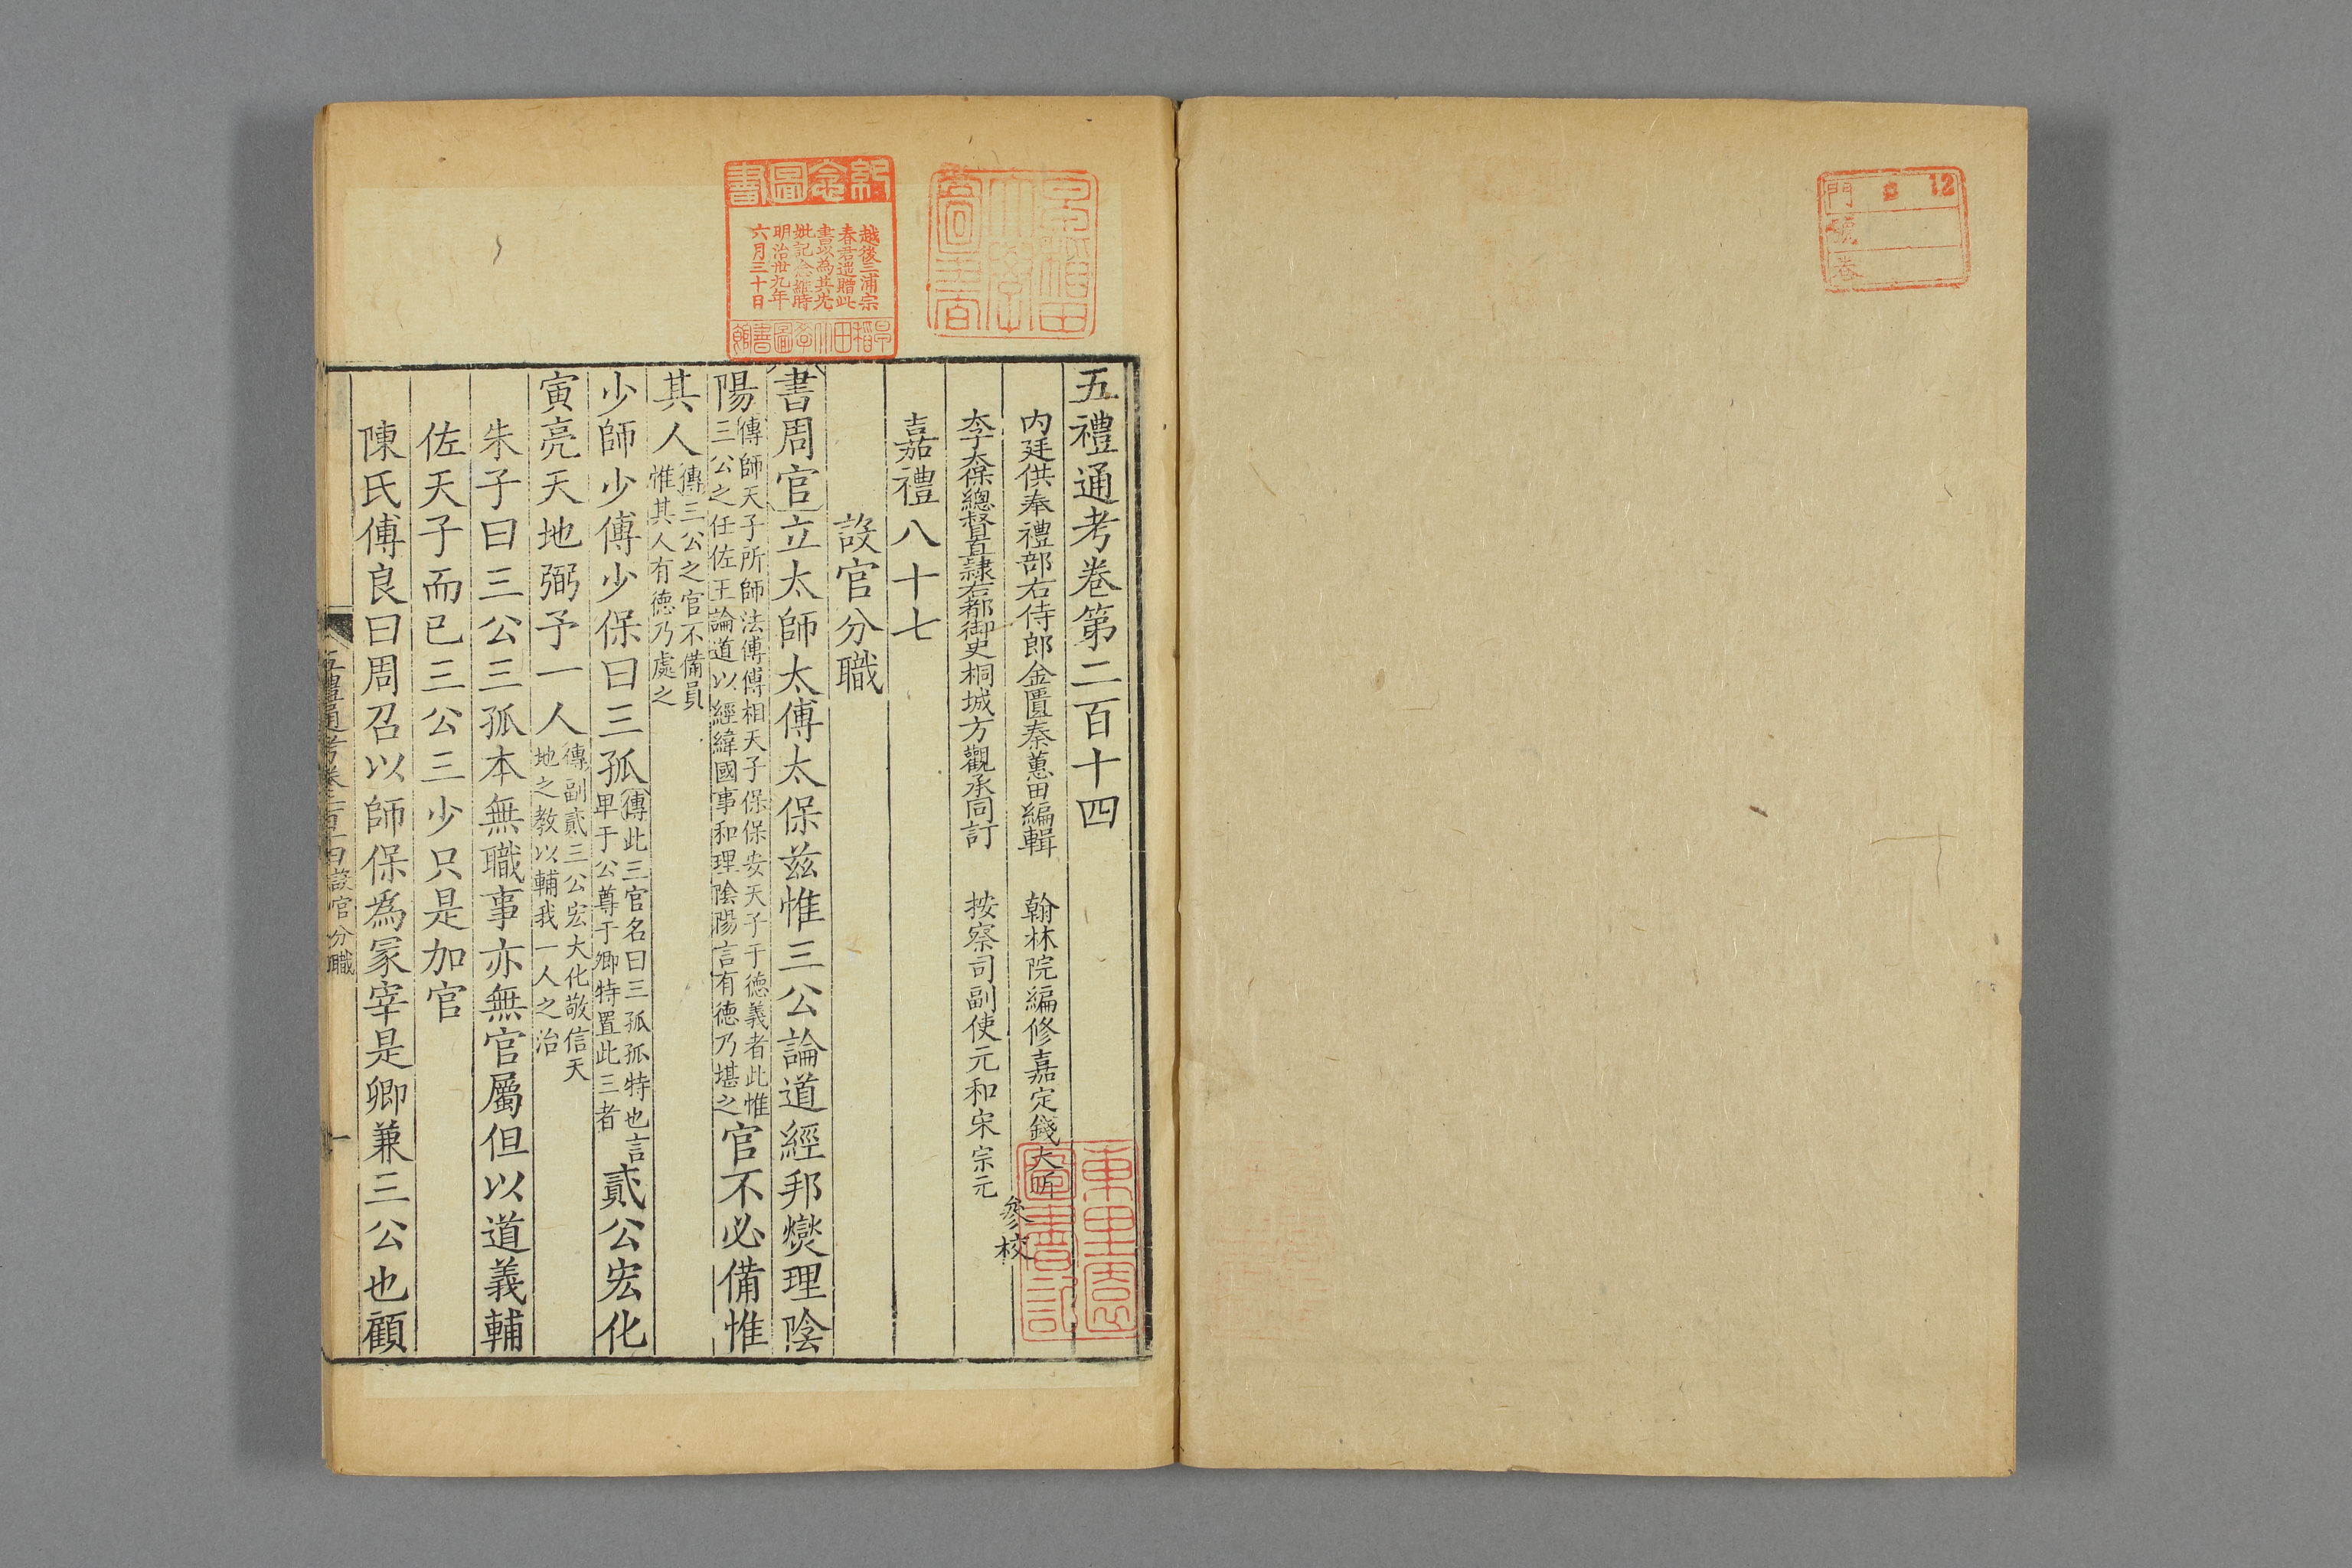 門
號
卷
12
五禮通考卷第二百十四
内廷供奉禮部右侍郎金匱秦蕙田編輯 翰林院編修嘉定錢大昕
太子太保總督直隷右都御史桐城方觀承同訂 按察司副使元和宋宗元
參校
嘉禮八十七
設官分職
書周官立太師太傅太保兹惟三公論道經邦燮理陰
陽傳師天子所師法傅傅相天子保保安天子于德義者此惟三公之任佐王論道以經緯國事和理陰陽言有德乃堪之官不必備惟
其人傳三公之官不備員惟其人有德乃處之
少師少傅少保曰三孤傳此三官名曰三孤孤特也言卑于公尊于卿特置此三者貳公宏化
寅亮天地弼予一人傳副貳三公宏大化敬信天地之教以輔我一人之治
朱子曰三公三孤本無職事亦無官屬但以道義輔
佐天子而已三公三少只是加官
陳氏傅良曰周召以師保為冢宰是卿兼三公也顧
五禮通考卷二百十四設官分職
一
早稻田大學圖書
紀念圖書
越後三浦宗
春君遊贈此
書以為其先
妣記念維時
明治卅九年
六月三十日
早稻田大學圖書館
圖書記